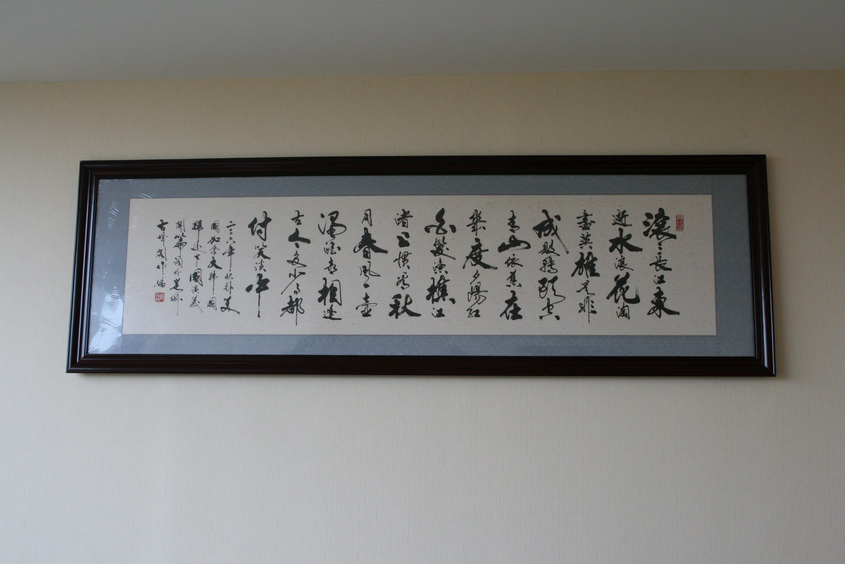 滚〻長江東
逝水浪花淘
盡英雄是非
成敗轉頭空
青山依舊在
幾度夕陽紅
白髮漁樵江
渚上慣看秋
月春風一壺
濁酒喜相逢
古今多少事都
付笑談中
二〇〇六年